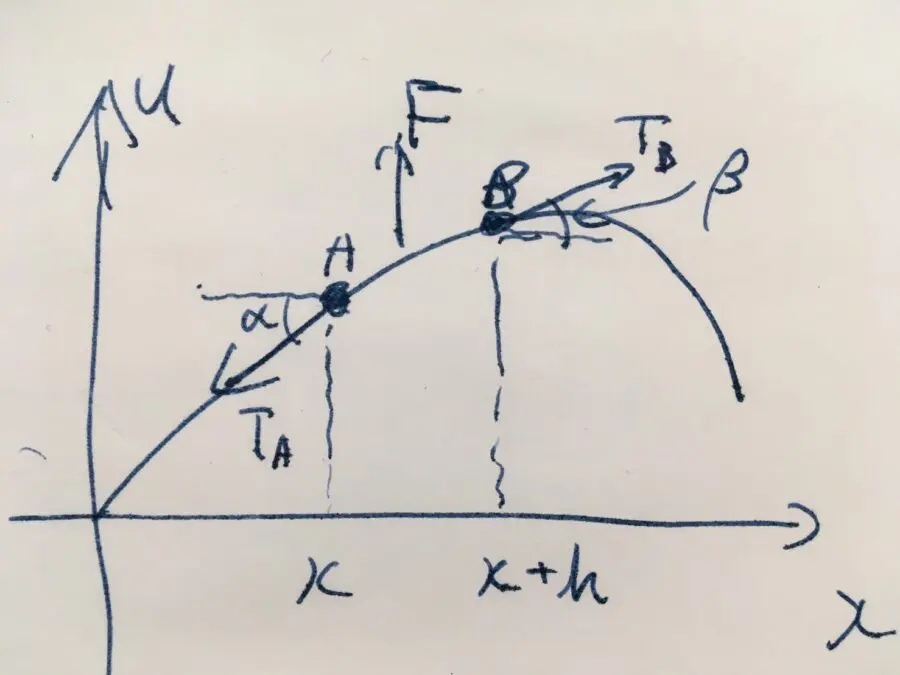 u
F
T_B
β
B
A
α
T_A
x
x+h
x